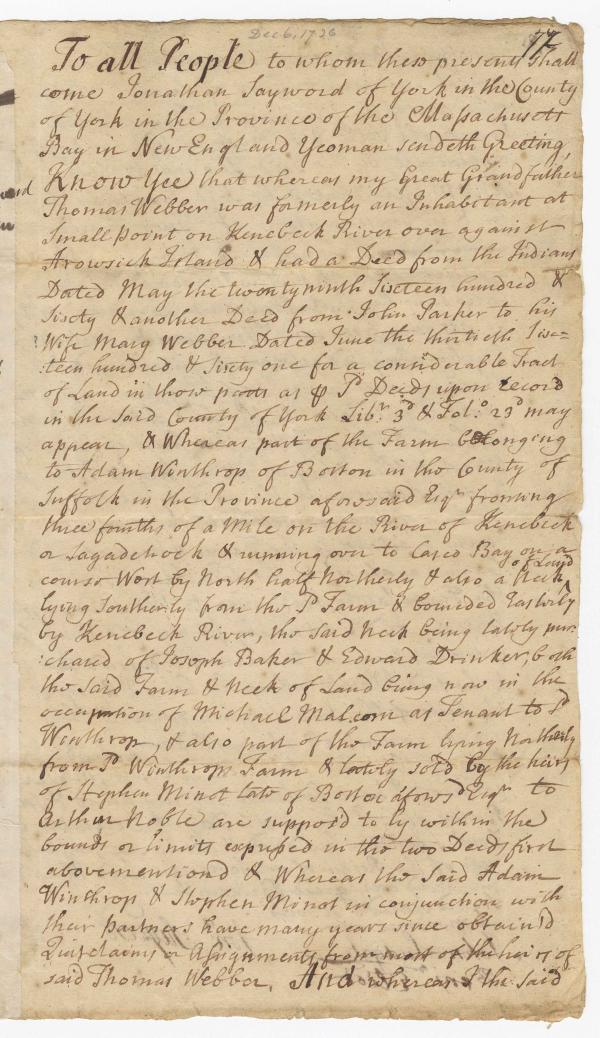 Dec 6, 1736
77
To all People to whom these presents shall
come Jonathan Sayword of York in the County
of York in the Province of the Massachusetts
Bay in New England Yeoman sendeth Greeting,
Know Yee that whereas my Great Grandfather
Thomas Webber was formerly an Inhabitant at
Small point on Kenebeck River over against
Arowsick Island & had a Deed from the Indians
Dated May the twenty ninth Sixteen hundred &
Sixty & another Deed from John Parker to his
Wife Mary Webber Dated June the thirtieth Six=
:teen hundred & Sixty one for a considerable Tract
of Land in those parts as ⅌ Sd Deeds upon record
in the Said County of York Libr. 3d & Folo. 23d may
appear, & Whereas part of the Farm belonging
to Adam Winthrop of Boston in the County of
Suffolk in the Province aforesaid Esqr fronting
three fourths of a Mile on the River of Kenebeck
or Sagadehock & running over to Casco Bay on a
course West by North half Northerly & also a Neck of Land
lying Southerly from the Sd Farm & bounded Easterly
by Kenebeck River, the said Neck being lately pur=
:chased of Joseph Baker & Edward Drinker, both
the Said Farm & Neck of Land being now in the
occupation of Michael Malcom as Tenant to Sd
Winthrop, & also part of the Farm lying Northerly
from Sd Winthrops Farm & lately sold by the heirs
of Stephen Minot late of Boston aforesd Esqr to
Arthur Noble are suppos'd to ly within the
bounds or limits expressed in the two Deeds first
abovementiond & Whereas the Said Adam
Winthrop & Stephen Minot in conjunction with
their partners have many years since obtain'd
Quitclaims or Assignments from most of the heirs of
said Thomas Webber, And whereas I the said